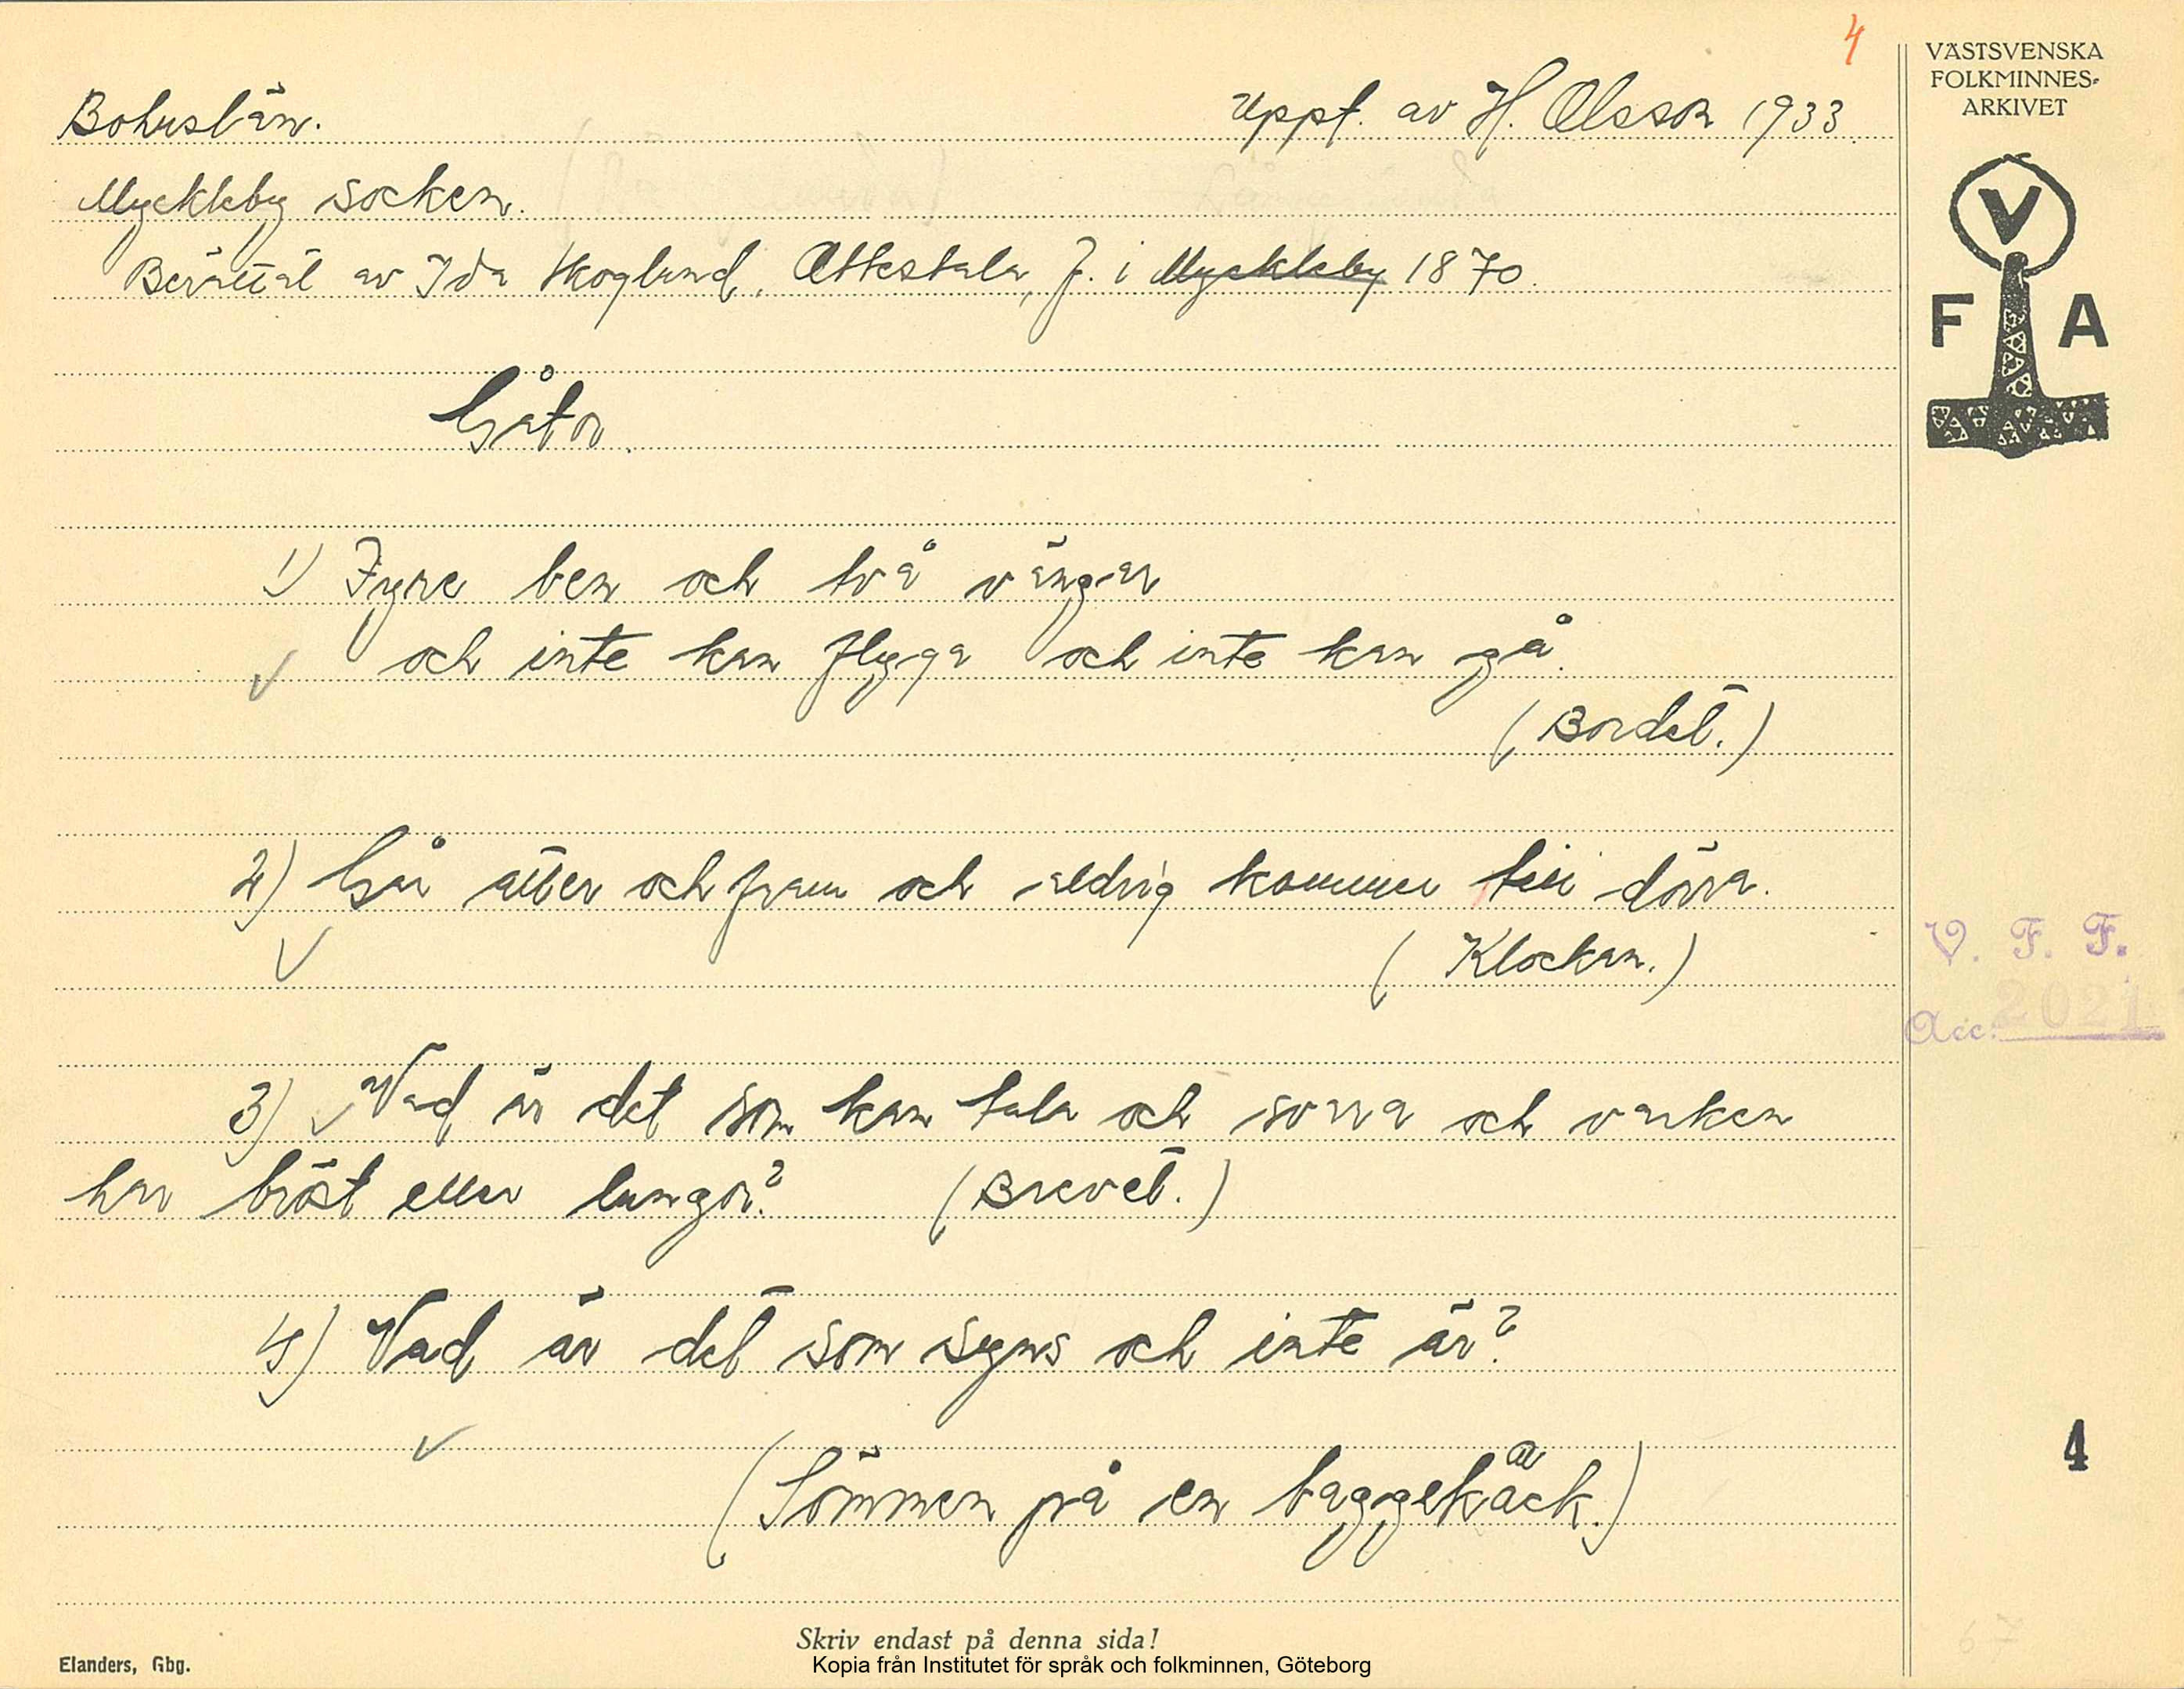 4
VÄSTSVENSKA
FOLKMINNES-
ARKIVET
V
F A
Bohuslän. Uppt. av H. Olsson 1933.
Myckleby socken.
Berättat av Ida Skoglund, f. i Myckleby 1870.
Gåtor.
1) Fyre ben och två vingar
och inte kan flyga och inte kan gå.
(Bordet.)
2) Går åtter och fram och aldrig kommer till dörra.
(Klockan.)
V. F. F.
Acc. 2021
3) Vad är det som kan tala och svara och varken
har bröst eller lungor? (Brevet.)
4) Vad är det som syns och inte är?
(Sömmen på en baggekäck.)
4
Skriv endast på denna sida!
Elanders, Gbg.
Kopia från Institutet för språk och folkminnen, Göteborg